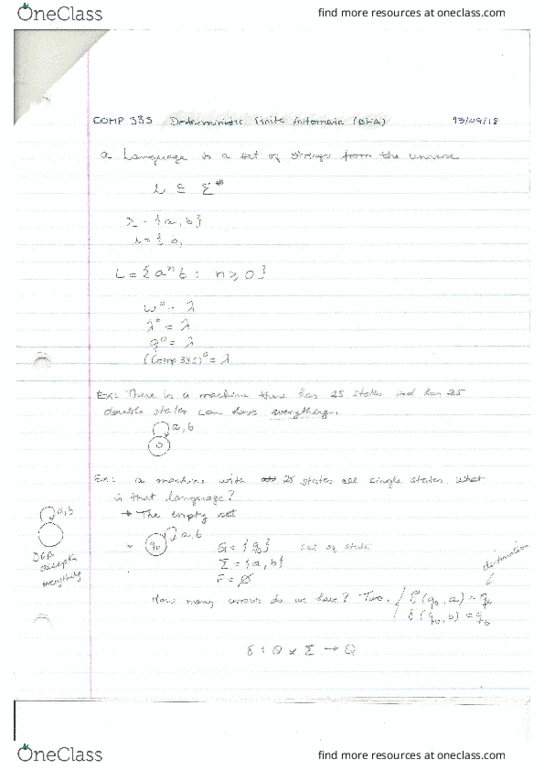 OneClass
find more resources at oneclass.com
COMP 335 Deterministic Finite Automata (DFA) 13/09/18
a Language is a set of strings from the universe
L ⊆ Σ*
Σ = {a, b}
L = { a,
L = {aⁿb : n ≥ 0}
w⁰ = λ
λ⁰ = λ
a⁰ = λ
(Comp 335)⁰ = λ
Ex: There is a machine there has 25 states and has 25
double states can does everything.
a, b
Ex: a machine with 25 states all single states. what
is that language?
→ The empty set
a, b
DFA
accepts
everything
q₀ a, b
Q = {q₀} set of state
Σ = {a, b}
F = ∅
destination
How many arrows do we have? Two. / δ(q₀, a) = q₀
δ(q₀, b) = q₀
δ : Q × Σ → Q
OneClass
find more resources at oneclass.com